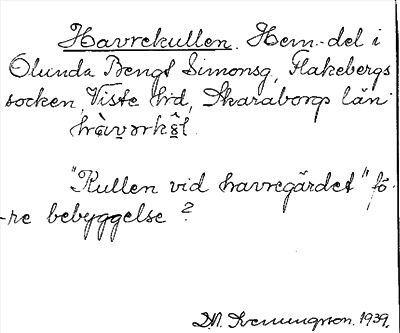 Havrekullen. Hem.-del i
Olunda Bengt Simonsg, Flakebergs
socken, Viste hrd, Skaraborgs län
"Kullen vid havregärdet" fö-
-re bebyggelse?
1939.